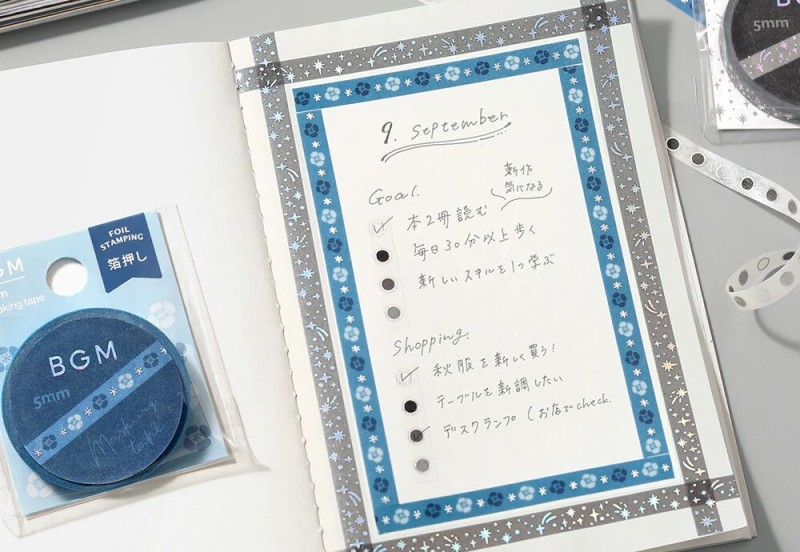 9. September
Goal.
新作
気になる
本2冊読む
毎日30分以上歩く
新しいスキルを1つ学ぶ
Shopping.
秋服を新しく買う!
テーブルを新調したい
デスクランプ (お店でcheck.
FOIL
STAMPING
箔押し
GM
m
king tape
BGM
5mm
Masking
tape
BGM
5mm